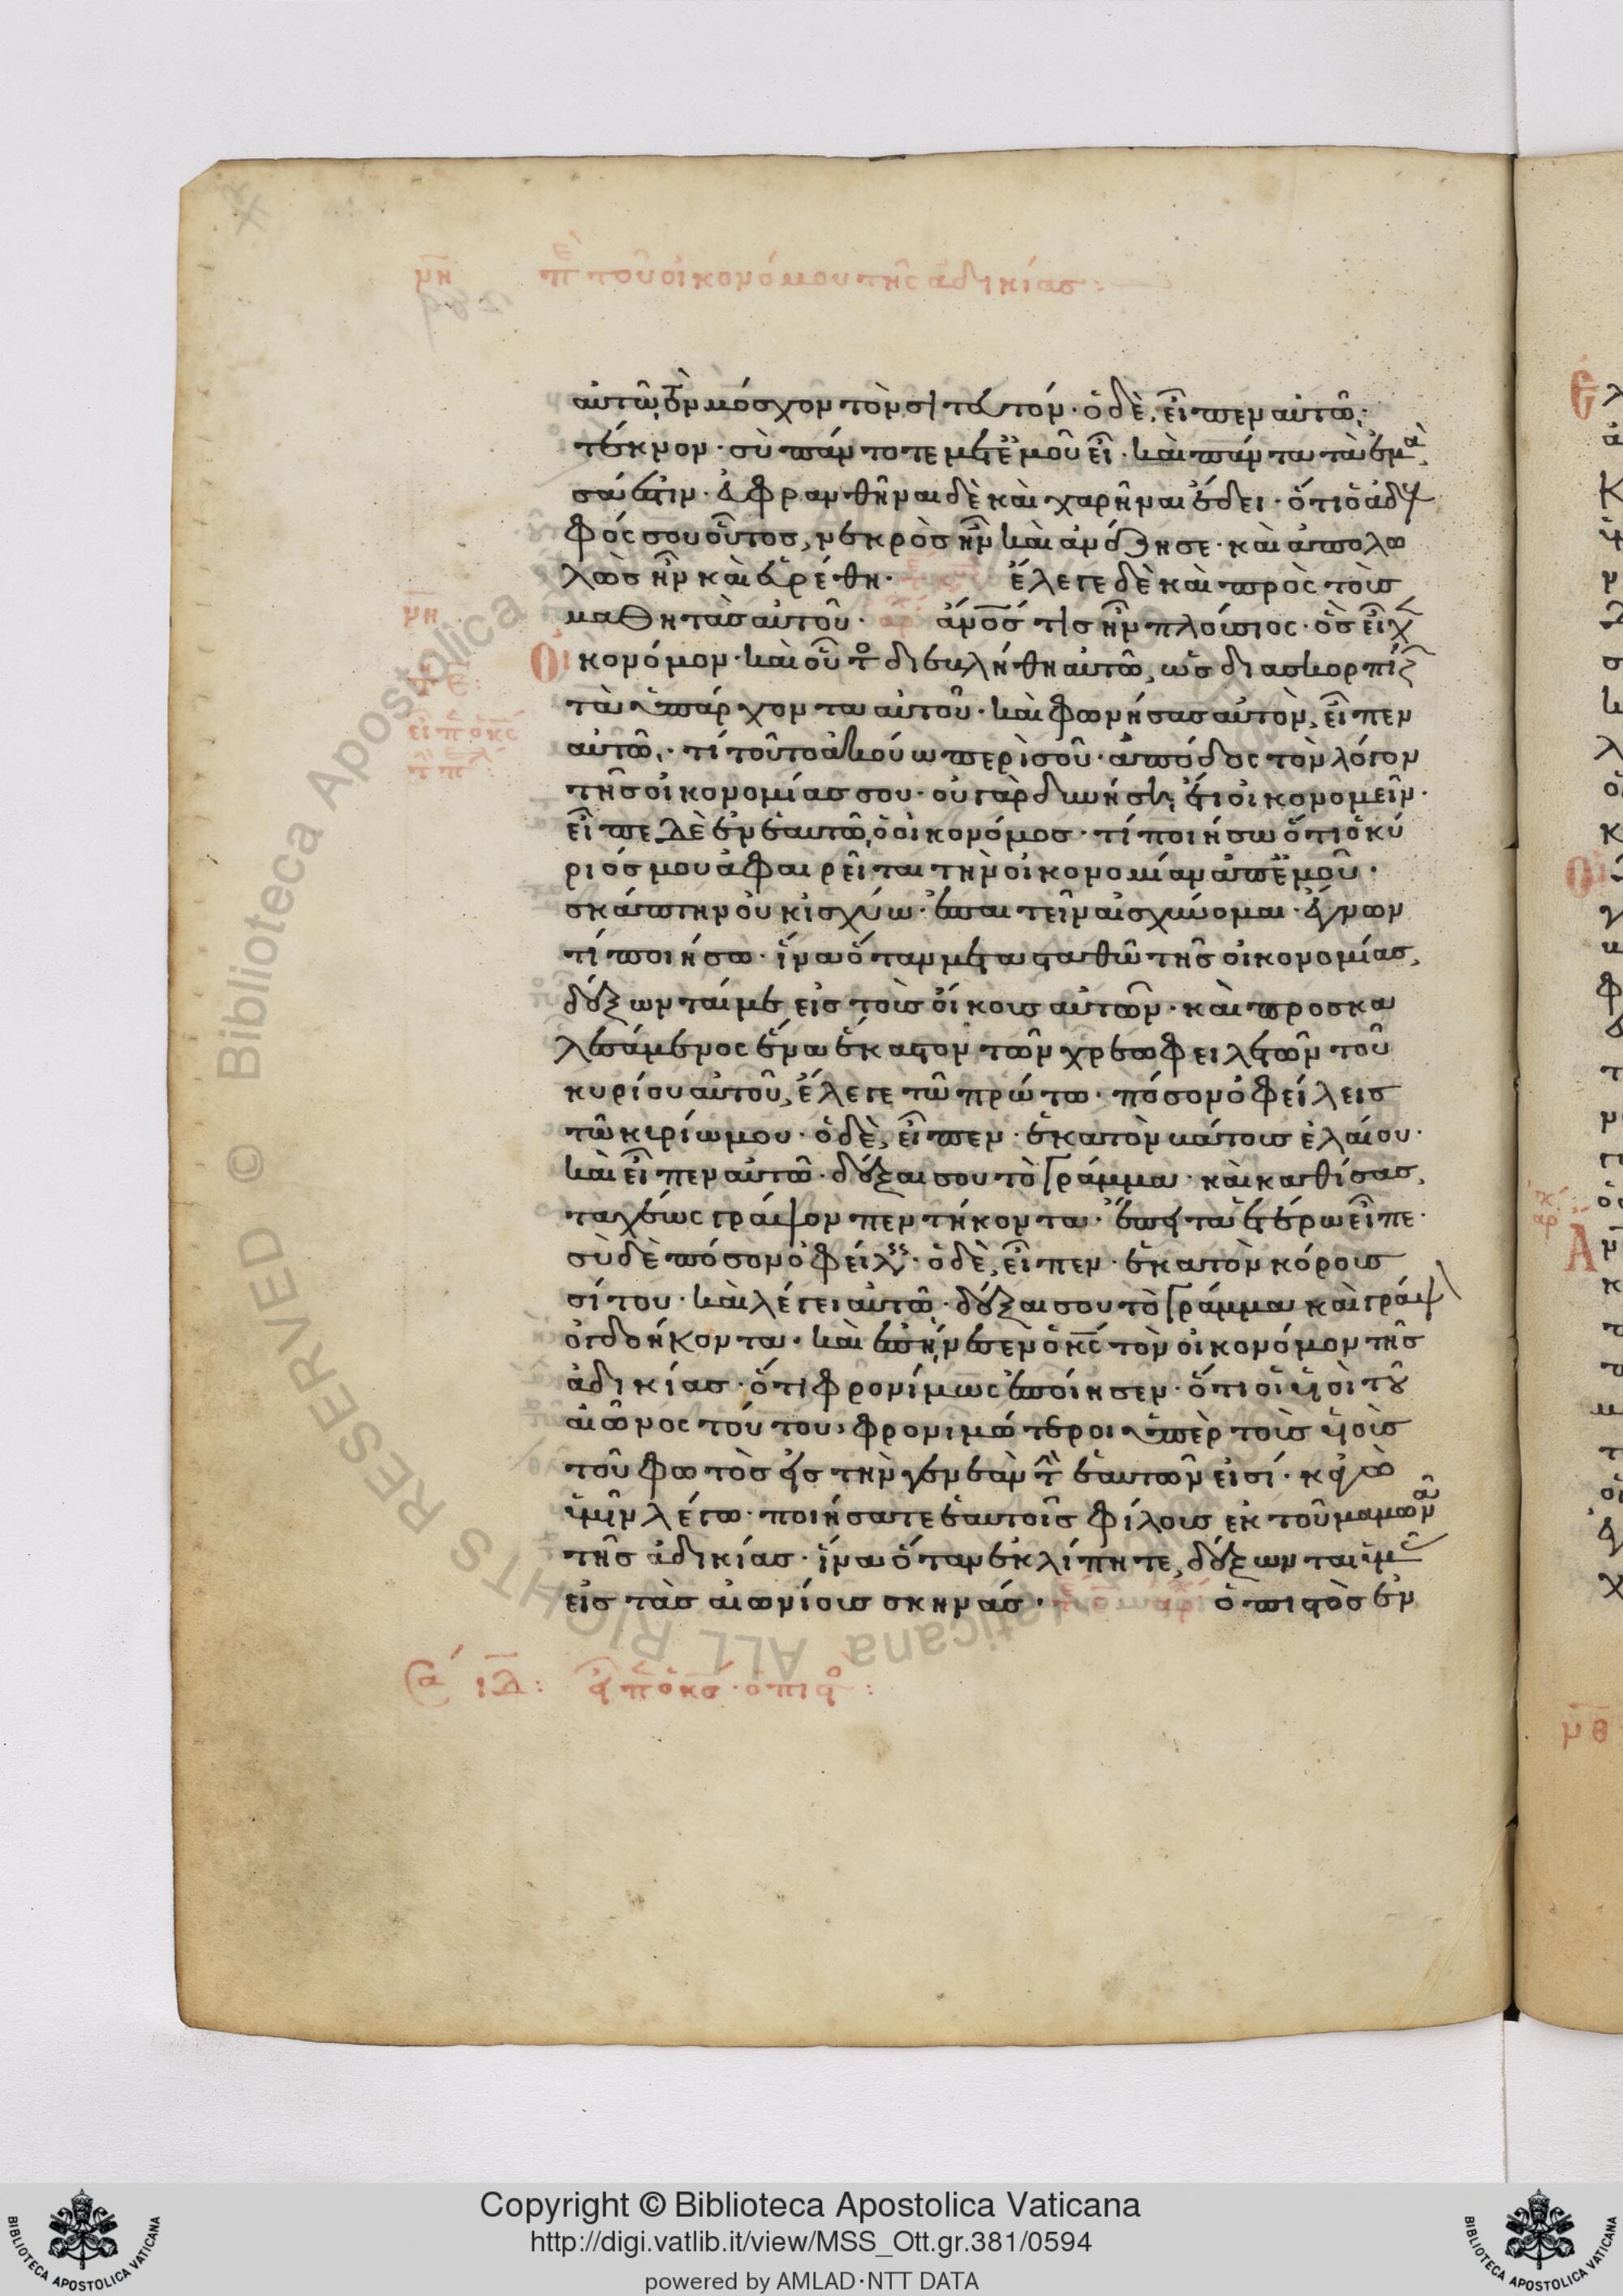 μη π τοῦ οἰκονόμου της ἀδικίας:
αὐτῶ, τὸν μόσχον τὸν σιτευτόν· ὁ δὲ, εἶπεν αὐτῶ·
τέκνον· σὺ πάντοτε μετ ἐμοῦ εἶ· καὶ πάντα τὰ ἐμὰ,
σά ἐστιν· εὐφρανθῆναι δὲ καὶ χαρῆναι ἔδει· ὅτι ὁ ἀδελ
φός σου οὗτος, νεκρὸς ἦν καὶ ἀνέζησε· καὶ ἀπολω
λὼς ἦν καὶ εὑρέθη· ἔλεγε δὲ καὶ πρὸς τοὺς
μη μαθητὰς αὐτοῦ· ἄνος τὶς ἦν πλούσιος· ὃς εἶχ
Οἰκονόμον· καὶ οὗτος διεβλήθη αὐτῶ, ὡς διασκορπίζ
τὰ ὑπάρχοντα αὐτοῦ· καὶ φωνήσας αὐτὸν, εἶπεν
εἶπ ὁ κς
αὐτῶ· τί τοῦτο ἀκούω περὶ σοῦ· ἀπόδος τὸν λόγον
τῆς οἰκονομίας σου· οὐ γὰρ δυνήση ἔτι οἰκονομεῖν·
εἶπε δὲ ἐν ἑαυτῶ, ὁ οἰκονόμος· τί ποιήσω ὅτι ὁ κύ
ριός μου ἀφαιρεῖται τὴν οἰκονομίαν ἀπ ἐμοῦ·
σκάπτην οὐκ ἰσχύω· ἐπαιτεῖν αἰσχύνομαι· ἔγνων
τί ποιήσω· ἵνα ὅταν μετασταθῶ τῆς οἰκονομίας,
δέξωνταί με εἰς τοὺς οἴκους αὐτῶν· καὶ προσκα
λεσάμενος ἕνα ἕκαστον τῶν χρεωφειλετῶν τοῦ
κυρίου αὐτοῦ, ἔλεγε τῶ πρώτω· πόσον ὀφείλεις
τῶ κυρίω μου· ὁ δὲ, εἶπεν· ἑκατὸν βάτους ἐλαίου·
καὶ εἶπεν αὐτῶ· δέξαι σου τὸ γράμμα· καὶ καθίσας,
ταχέως γράψον πεντήκοντα· ἔπειτα ἑτέρω εἶπε·
σὺ δὲ πόσον ὀφείλεις· ὁ δὲ, εἶπεν· ἑκατὸν κόρους
σίτου· καὶ λέγει αὐτῶ· δέξαι σου τὸ γράμμα καὶ γράψ
ὀγδοήκοντα· καὶ ἐπήνεσεν ὁ κς τὸν οἰκονόμον τῆς
ἀδικίας· ὅτι φρονίμως ἐποίησεν· ὅτι οἱ υἱοὶ του
αἰῶνος τούτου, φρονιμώτεροι ὑπὲρ τοὺς υἱοὺς
τοῦ φωτὸς εἰς τὴν γενεὰν τὴν ἑαυτῶν εἰσί· κἀγὼ
ὑμῖν λέγω· ποιήσατε ἑαυτοῖς φίλους ἐκ τοῦ μαμωνᾶ
τῆς ἀδικίας· ἵνα ὅταν ἐκλίπητε, δέξωνται ὑμᾶς
εἰς τὰς αἰωνίους σκηνάς· ὁ πιστὸς ἐν
ιδ: εἶπ ὁ κς· ὁ πιστὸς:
Copyright © Biblioteca Apostolica Vaticana
http://digi.vatlib.it/view/MSS_Ott.gr.381/0594
powered by AMLAD·NTT DATA
BIBLIOTECA APOSTOLICA VATICANA
BIBLIOTECA APOSTOLICA VATICANA
© Biblioteca Apostolica Vaticana ALL RIGHTS RESERVED